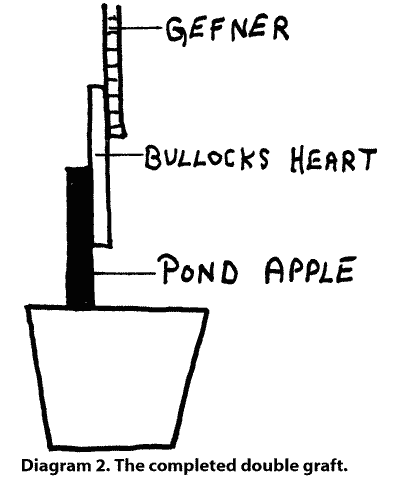 GEFNER
BULLOCKS HEART
POND APPLE
Diagram 2. The completed double graft.